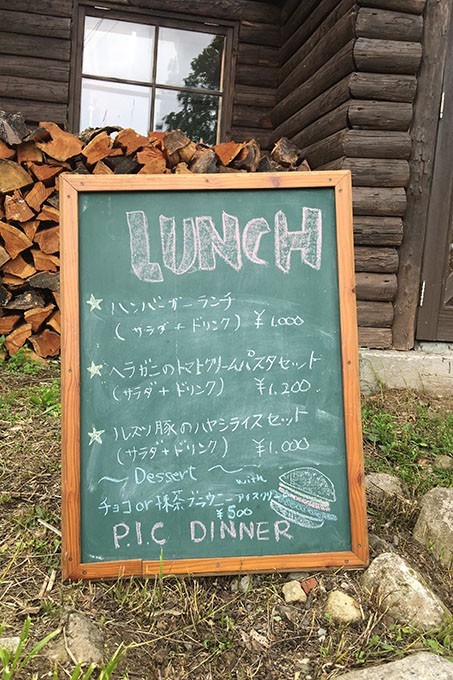 LUNCH
☆ ハンバーガーランチ
(サラダ + ドリンク) ¥1.000
★ ヘラガニのトマトクリームパスタセット
(サラダ + ドリンク) ¥1.200
☆ ルスツ豚のハヤシライスセット
(サラダ + ドリンク) ¥1.000
～ Dessert ～ with
チョコ or 抹茶ブラウニーアイスクリーム
¥500
P.I.C DINNER